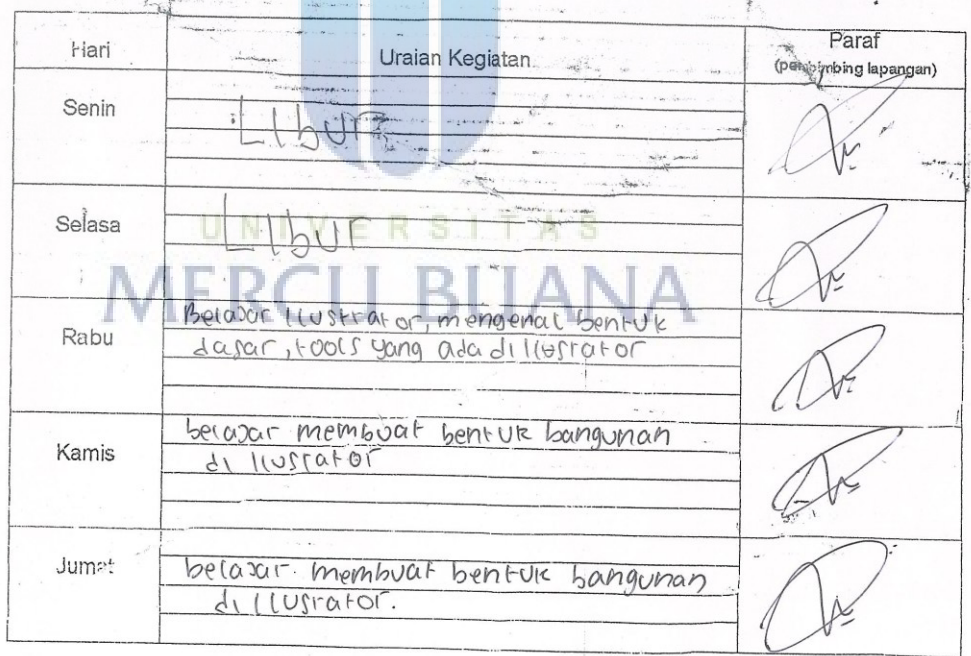 Hari
Uraian Kegiatan
Paraf
(pembimbing lapangan)
Senin
Libur
Selasa
Libur
UNIVERSITAS
MERCU BUANA
Rabu
Belajar illustrator, mengenal bentuk
dasar, tools yang ada di illustrator
Kamis
belajar membuat bentuk bangunan
di illustrator
Jumat
belajar membuat bentuk bangunan
di illustrator.